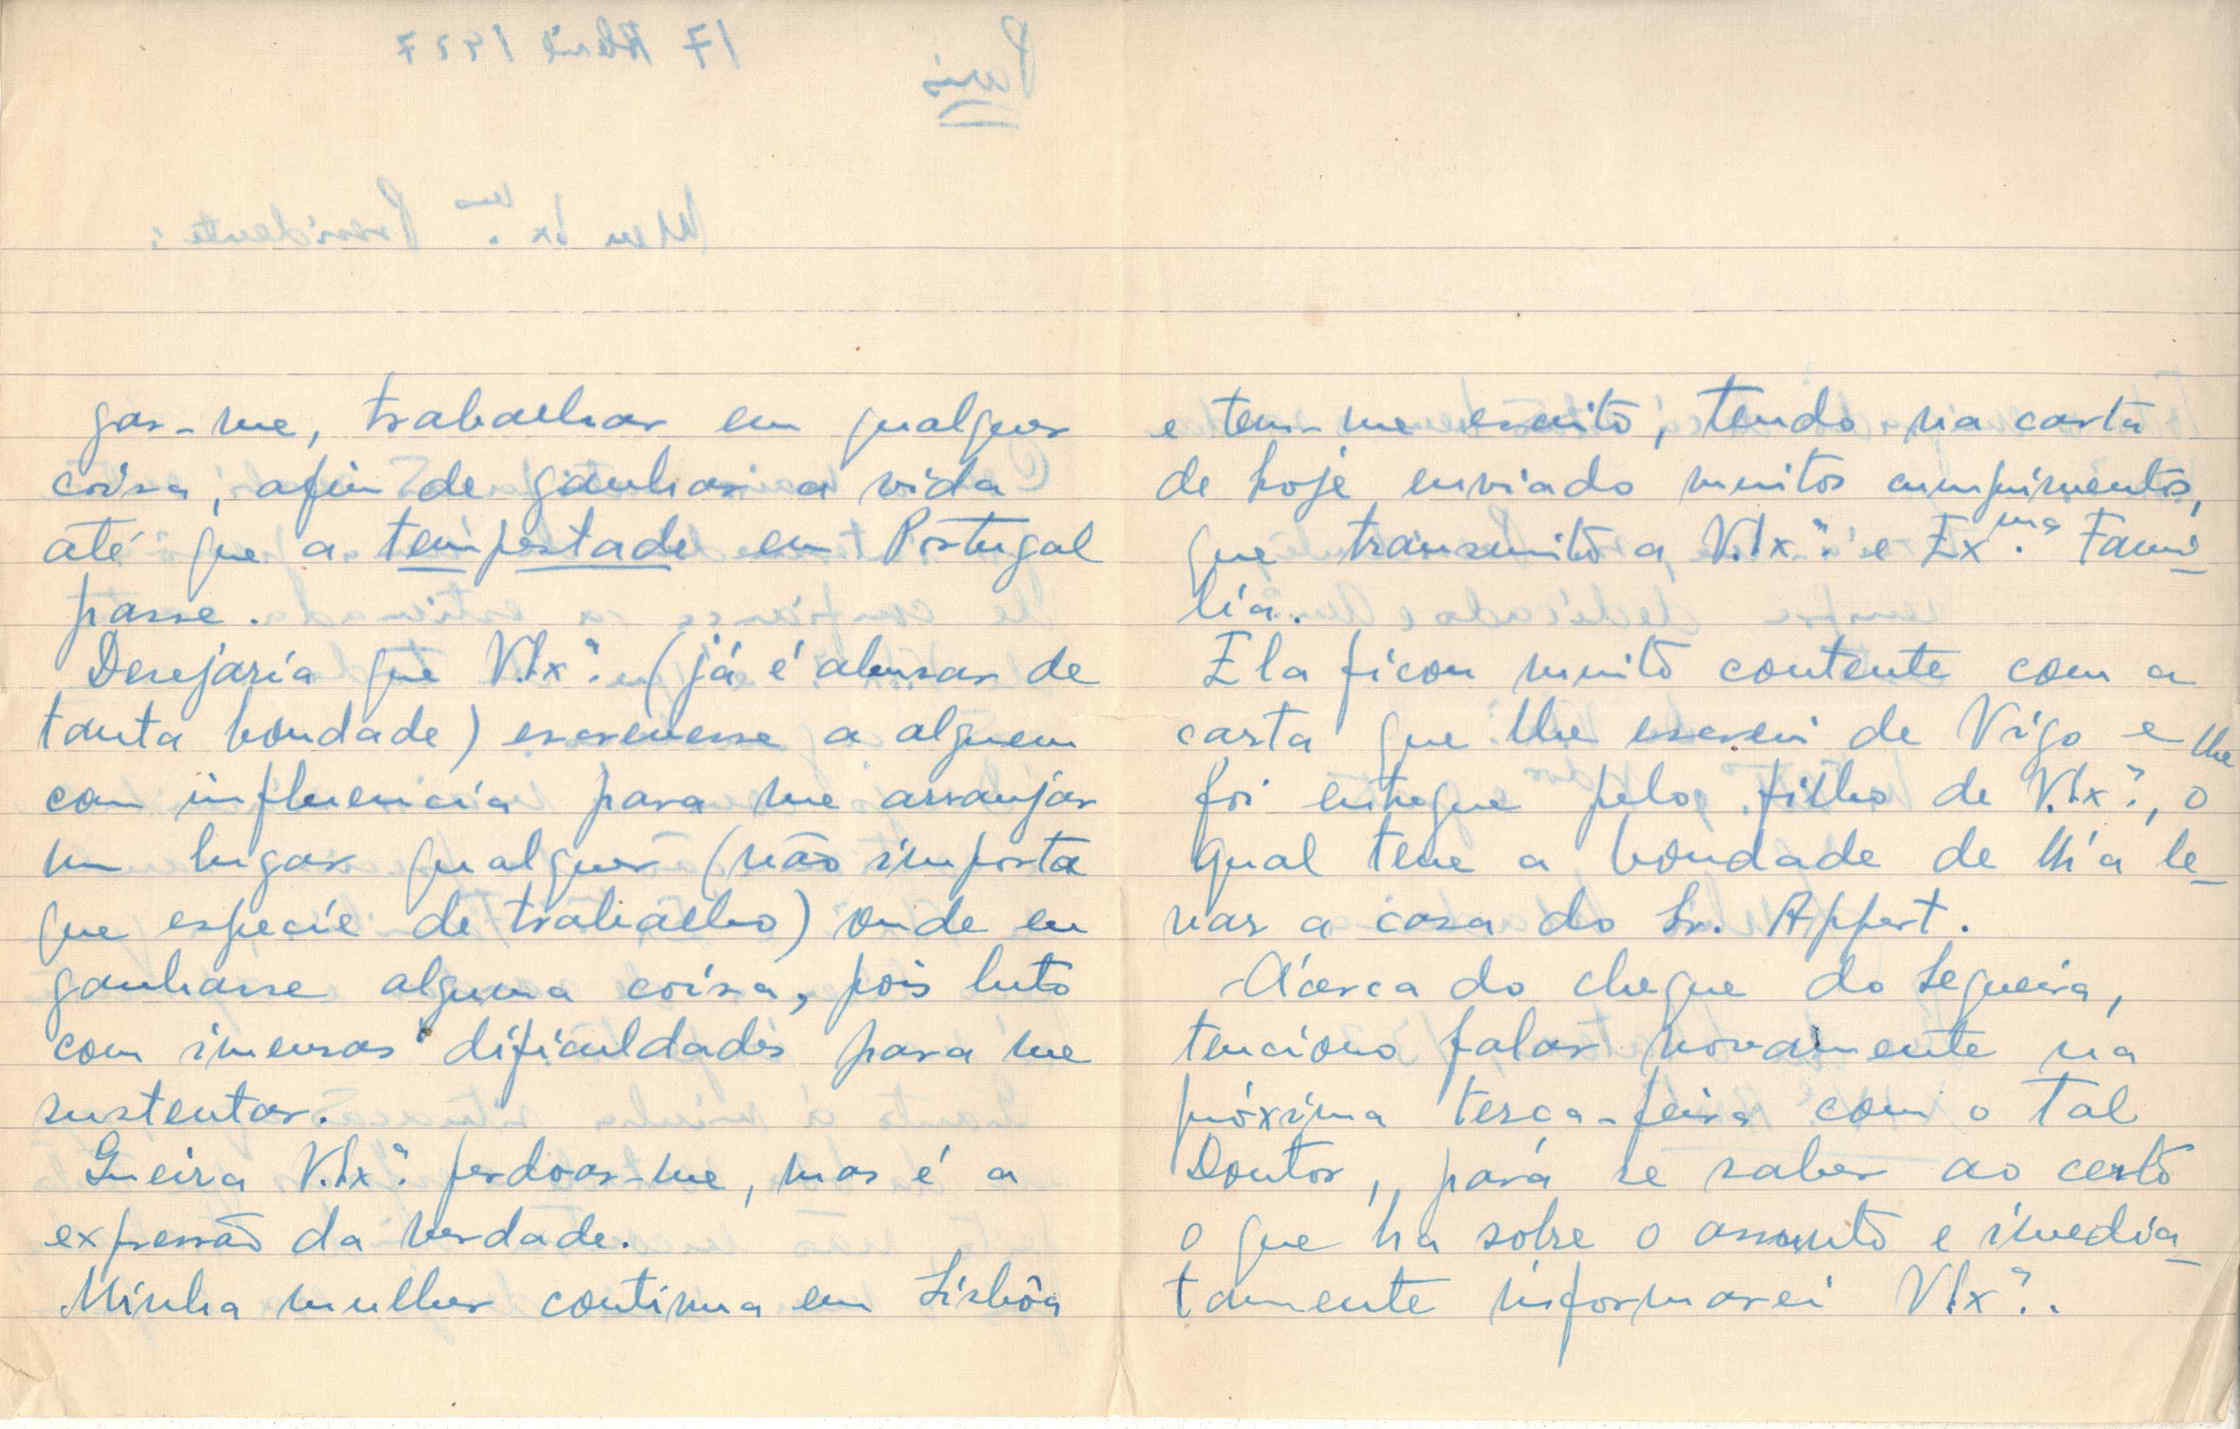 gar-me, trabalhar em qualquer
coisa, afim de ganhar a vida
até que a tempestade em Portugal
passe.
Desejaria que V. Ex.ª (já é abusar de
tanta bondade) escrevesse a alguem
com influencia para me arranjar
um lugar qualquer (não importa
que especie de trabalho) onde eu
ganhasse alguma coisa, pois luto
com imensas dificuldades para me
sustentar.
Queira V. Ex.ª perdoar-me, mas é a
expressão da verdade.
Minha mulher continua em Lisbôa
e tem-me escrito, tendo na carta
de hoje enviado muitos cumprimentos,
que transmito a V. Ex.ª e Ex.ma Fami-
lia.
Ela ficou muito contente com a
carta que lhe escrevi de Vigo e lhe
foi entregue pelo filho de V. Ex.ª, o
qual teve a bondade de lh'a le-
var a casa do Sr. Appert.
Ácerca do cheque do Sequeira,
tenciono falar novamente na
próxima terça-feira com o tal
Doutor, para se saber ao certo
o que ha sobre o assunto e imedia-
tamente informarei V. Ex.ª.